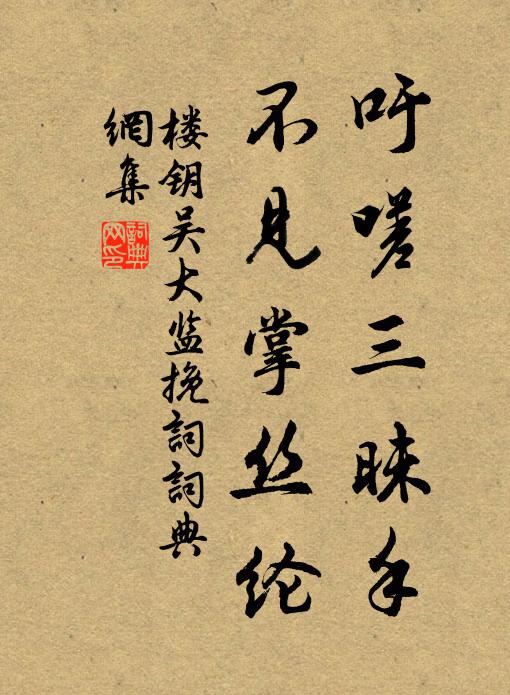 吁嗟三昧手
不见掌丝纶
楼钥吴大监挽词詞典
網集
詞典网印